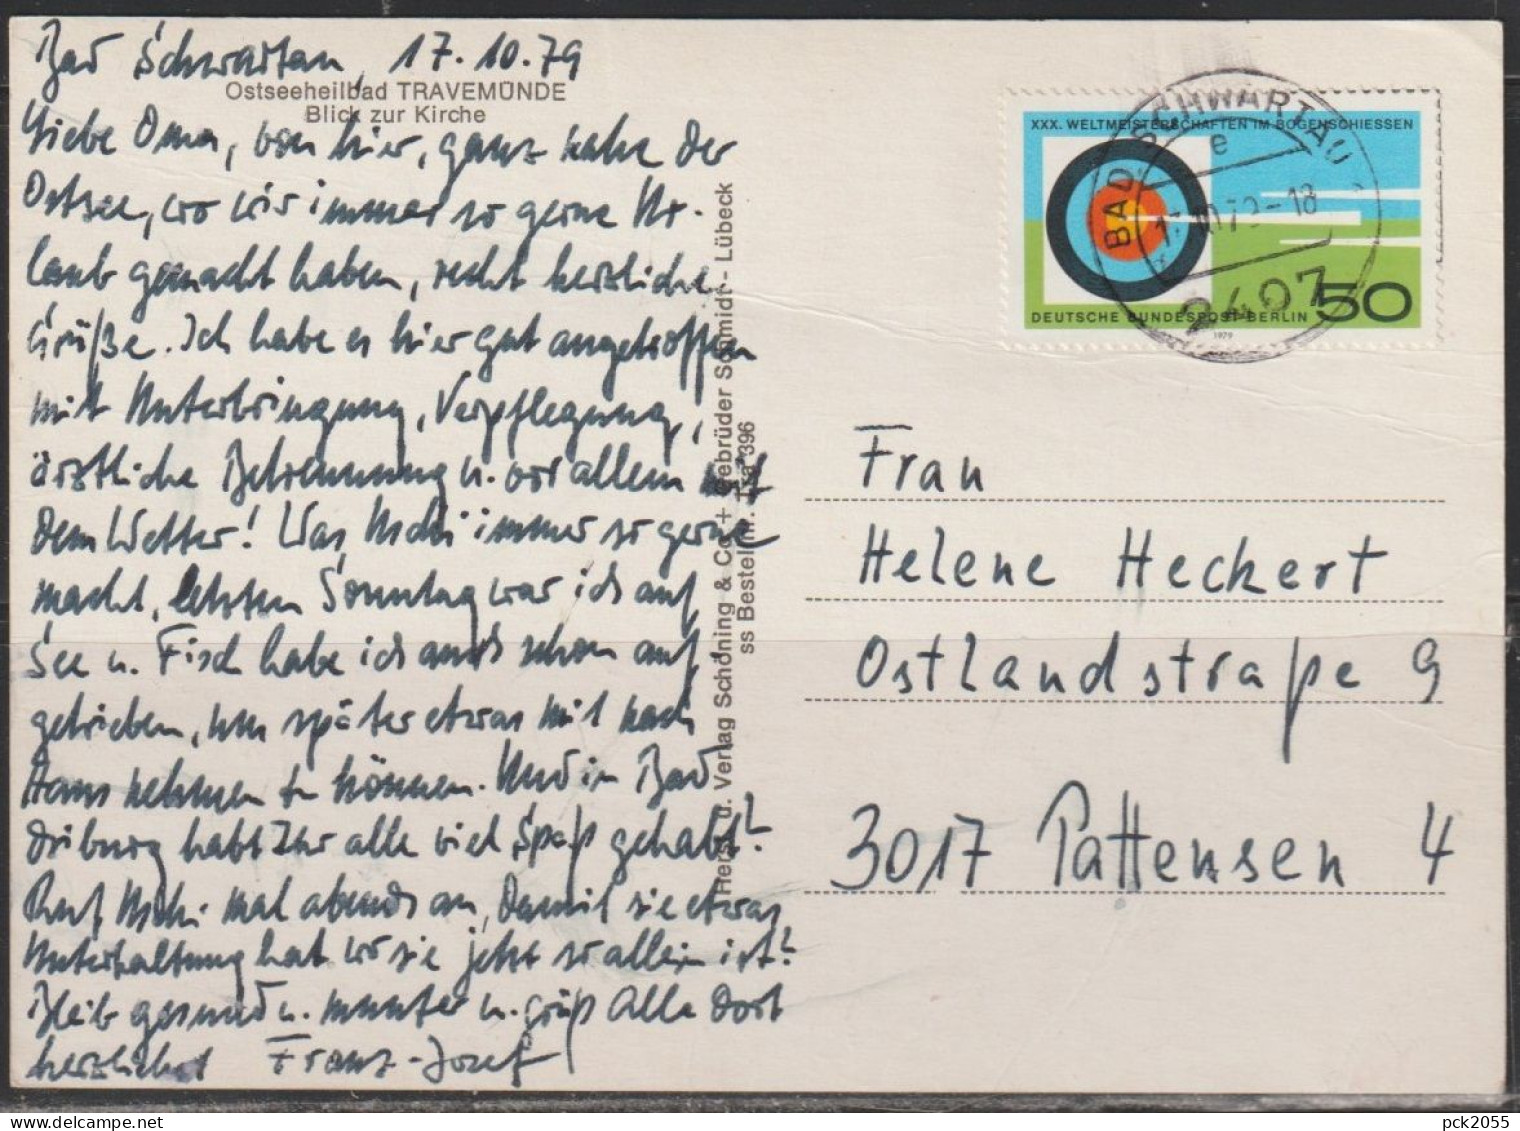 Bad Schwartau, 17.10.79
Ostseeheilbad TRAVEMÜNDE
Blick zur Kirche
Liebe Oma, von hier, ganz nahe der
Ostsee, wo wir immer so gerne Ur-
laub gemacht haben, recht herzliche
Grüße. Ich habe es hier gut angetroffen
mit Unterbringung, Verpflegung,
ärztliche Betreuung u. vor allem mit
dem Wetter! Was Uschi immer so gerne
macht, letzten Sonntag war ich auf
See u. Fisch habe ich auch schon auf
getrieben, um später etwas mit nach
Haus nehmen zu können. Und in Bad
Driburg habt Ihr alle viel Spaß gehabt?
Ruf Uschi mal abends an, damit sie etwas
Unterhaltung hat wo sie jetzt so allein ist?
Bleib gesund u. munter u. grüß Alle dort
herzlichst Franz-Josef
Herst. u. Verlag Schöning & Co + Gebrüder Schmidt - Lübeck
ss Bestell-Nr. Tra 396
XXX. WELTMEISTERSCHAFTEN IM BOGENSCHIESSEN
DEUTSCHE BUNDESPOST BERLIN 50
1979
BAD SCHWARTAU
e
17.10.79-18
2407
Frau
Helene Heckert
Ostlandstraße 9
3017 Pattensen 4
pck2055